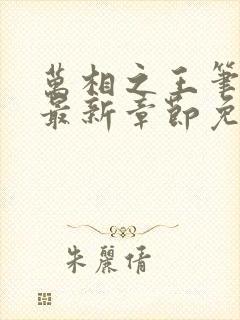 萬相之王筆
最新章節免
朱麗倩